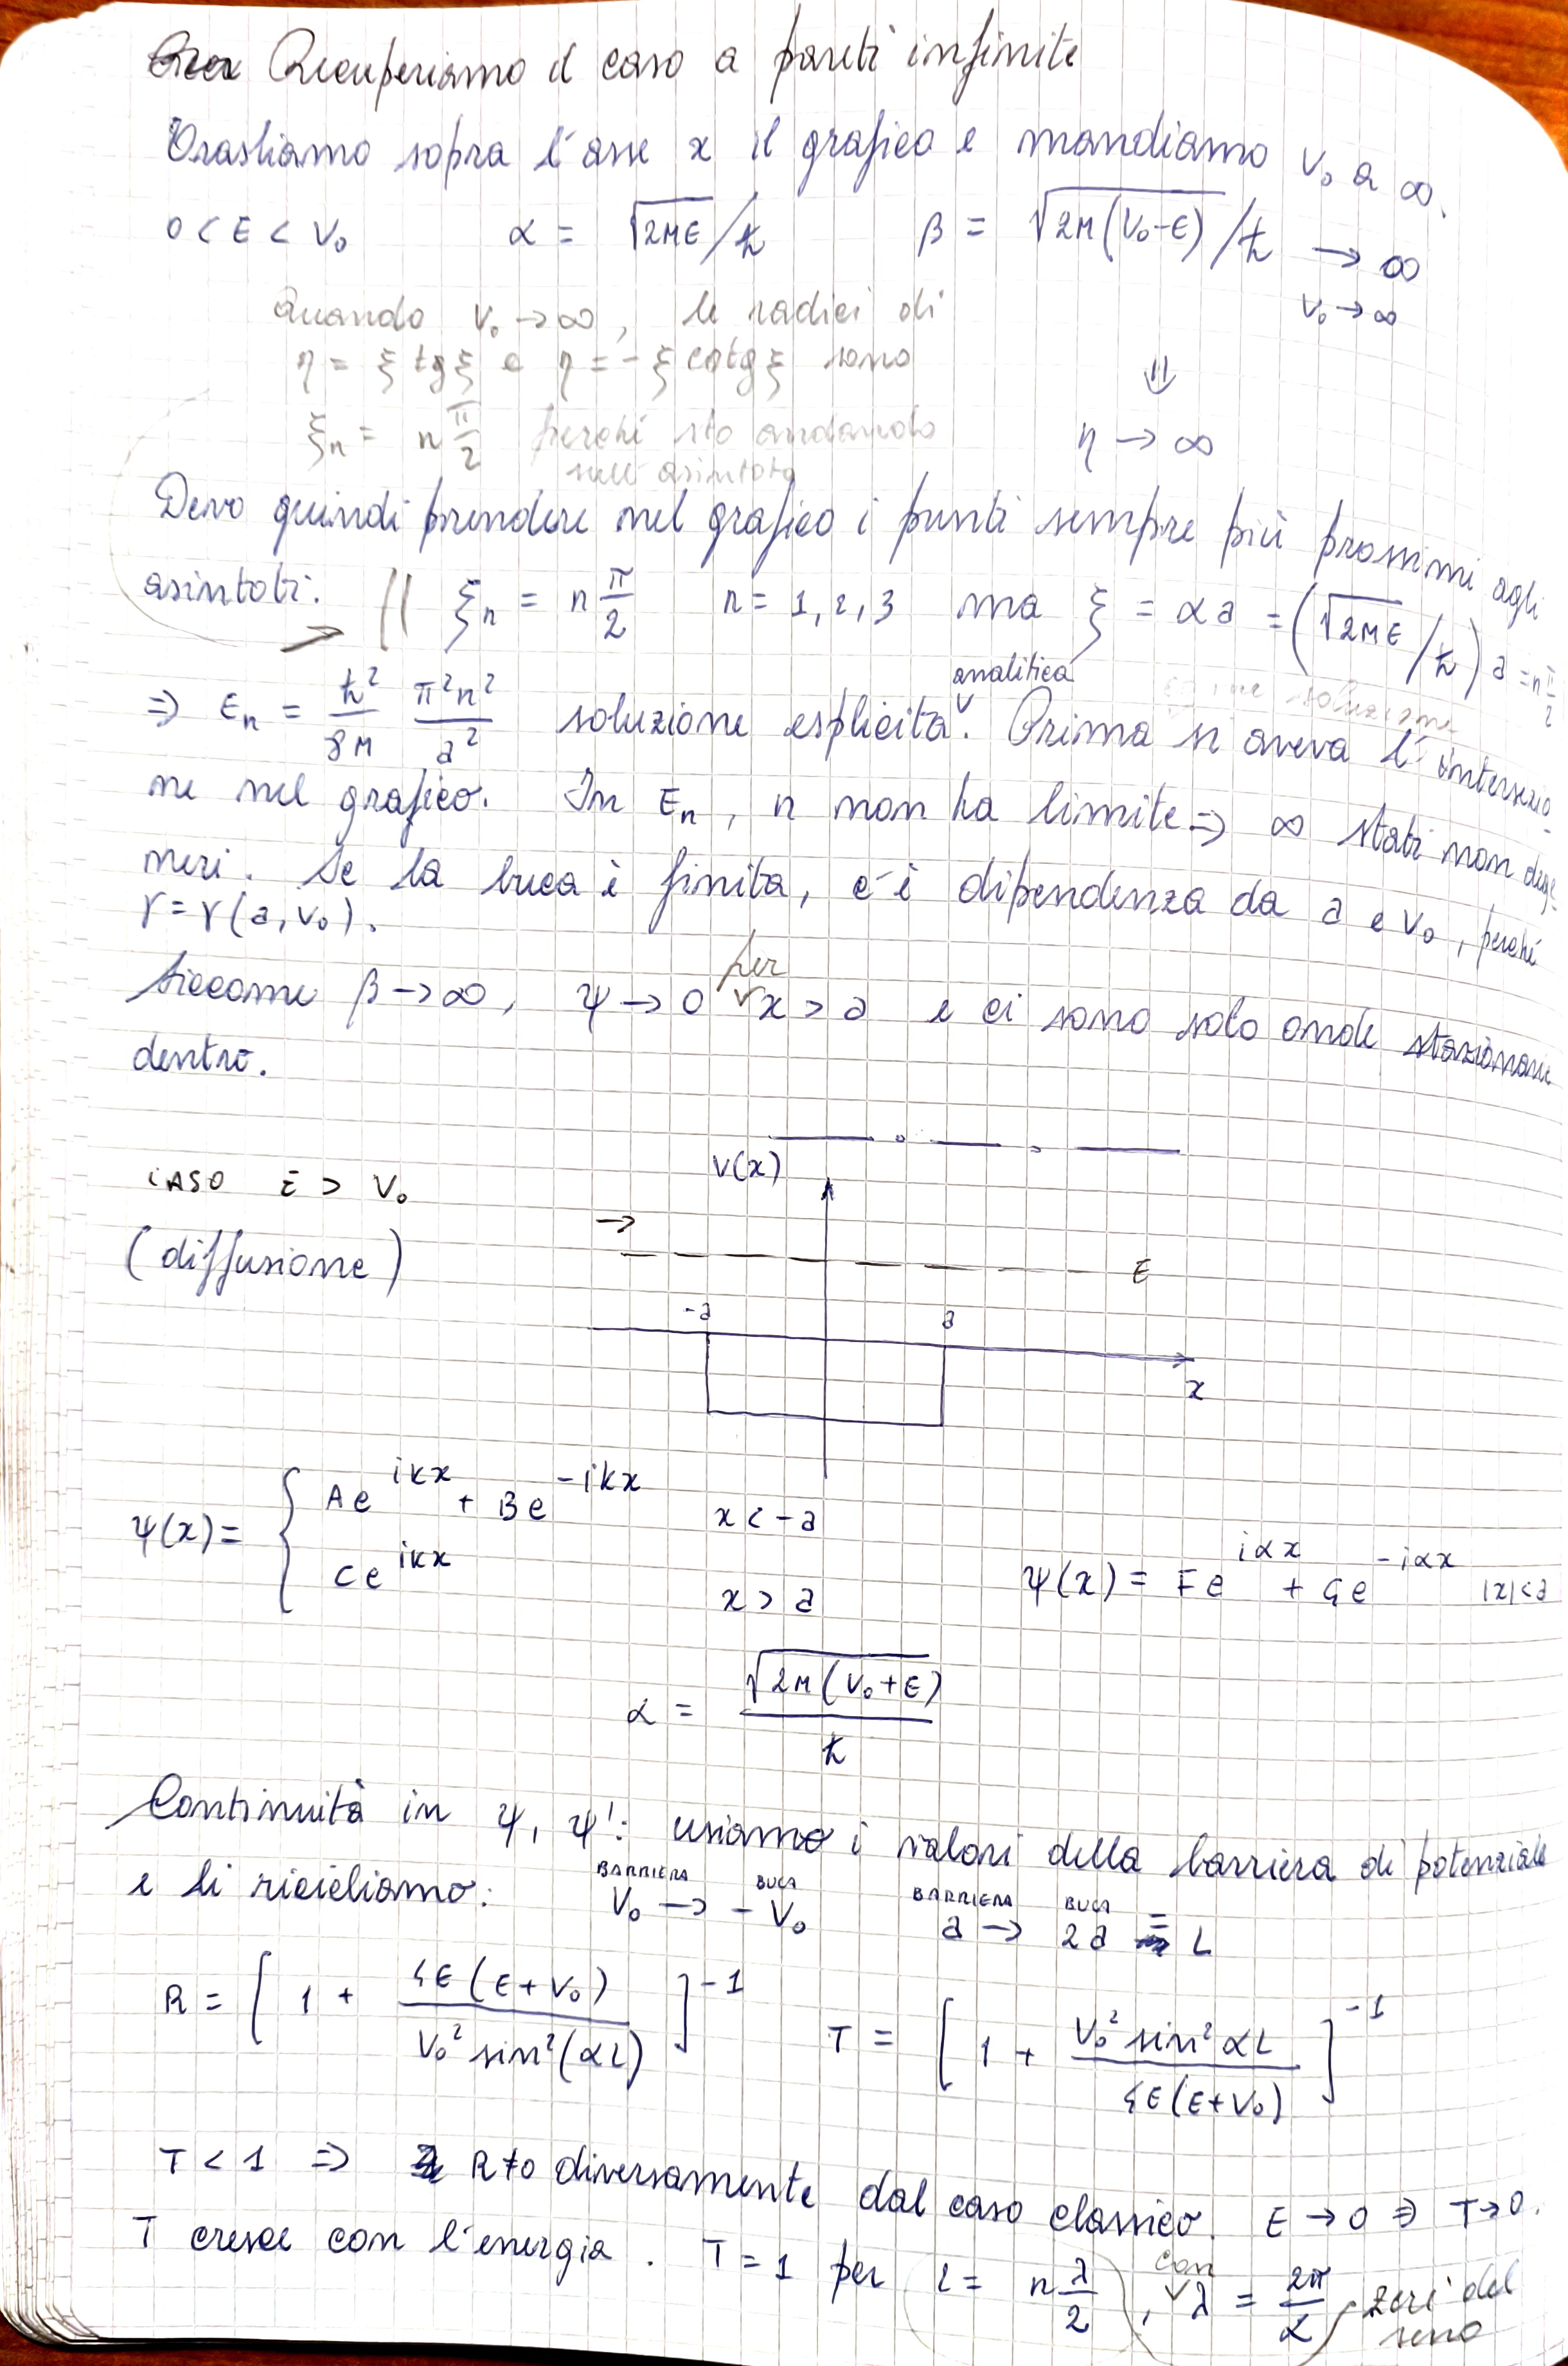 Recuperiamo il caso a pareti infinite
Trasliamo sopra l'asse x il grafico e mandiamo V₀ a ∞.
0 < E < V₀ α = √(2ME)/ħ β = √(2M(V₀-E))/ħ → ∞
V₀ → ∞
Quando V₀ → ∞, le radici di
η = ξ tgξ e η = -ξ cotgξ sono
⇓
ξₙ = n π/2 perché sto andando
sull'asintoto
η → ∞
Devo quindi prendere nel grafico i punti sempre più prossimi agli
asintoti: ξₙ = n π/2 n = 1, 2, 3 ma ξ = αa = (√(2ME)/ħ) a = n π/2
analitica
⇒ Eₙ = ħ²/8M π²n²/a² soluzione esplicita. Prima si aveva l'intersezio-
come soluzione
ne nel grafico. In Eₙ, n non ha limite ⇒ ∞ stati non dege-
neri. Se la buca è finita, c'è dipendenza da a e V₀, perché
γ = γ(a, V₀).
Siccome β → ∞, ψ → 0 per x > a e ci sono solo onde stazionarie
dentro.
CASO E > V₀
(diffusione)
V(x)
→
E
-a a
x
ψ(x) = { Ae^{ikx} + Be^{-ikx} x < -a
Ce^{ikx} x > a
ψ(x) = Fe^{iαx} + Ge^{-iαx} |x| < a
α = √(2M(V₀+E))/ħ
Continuità in ψ, ψ': usiamo i valori della barriera di potenziale
e li ricicliamo: BARRIERA V₀ → BUCA -V₀ BARRIERA a → BUCA 2a = L
R = [1 + 4E(E+V₀)/V₀² sin²(αL)]⁻¹ T = [1 + V₀² sin² αL/4E(E+V₀)]⁻¹
T < 1 ⇒ R≠0 diversamente dal caso classico. E → 0 ⇒ T → 0.
T cresce con l'energia. T = 1 per L = n λ/2, con λ = 2π/α, zeri del
seno